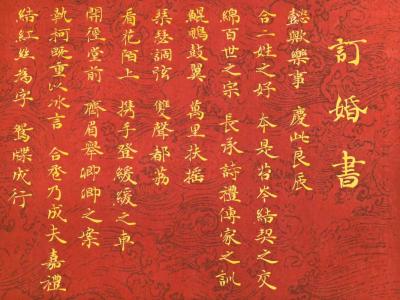 訂婚書
懿歟樂事 慶此良辰
合二姓之好 本是苔岑結契之交
綿百世之宗 長承詩禮傳家之訓
鯤鵬鼓翼 萬里扶搖
琴瑟調弦 雙聲都荔
看花陌上 携手登緩緩之車
開徑堂前 齊眉舉卿卿之案
執柯既重以冰言 合巹乃成夫嘉禮
結紅絲為字 鴛牒成行